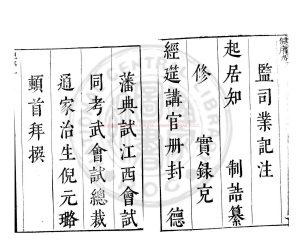 監司業記注
起居知　制誥纂
修　實錄克
經筵講官册封　德
藩典試江西會試
同考武會試總裁
通家治生倪元璐
頓首拜撰